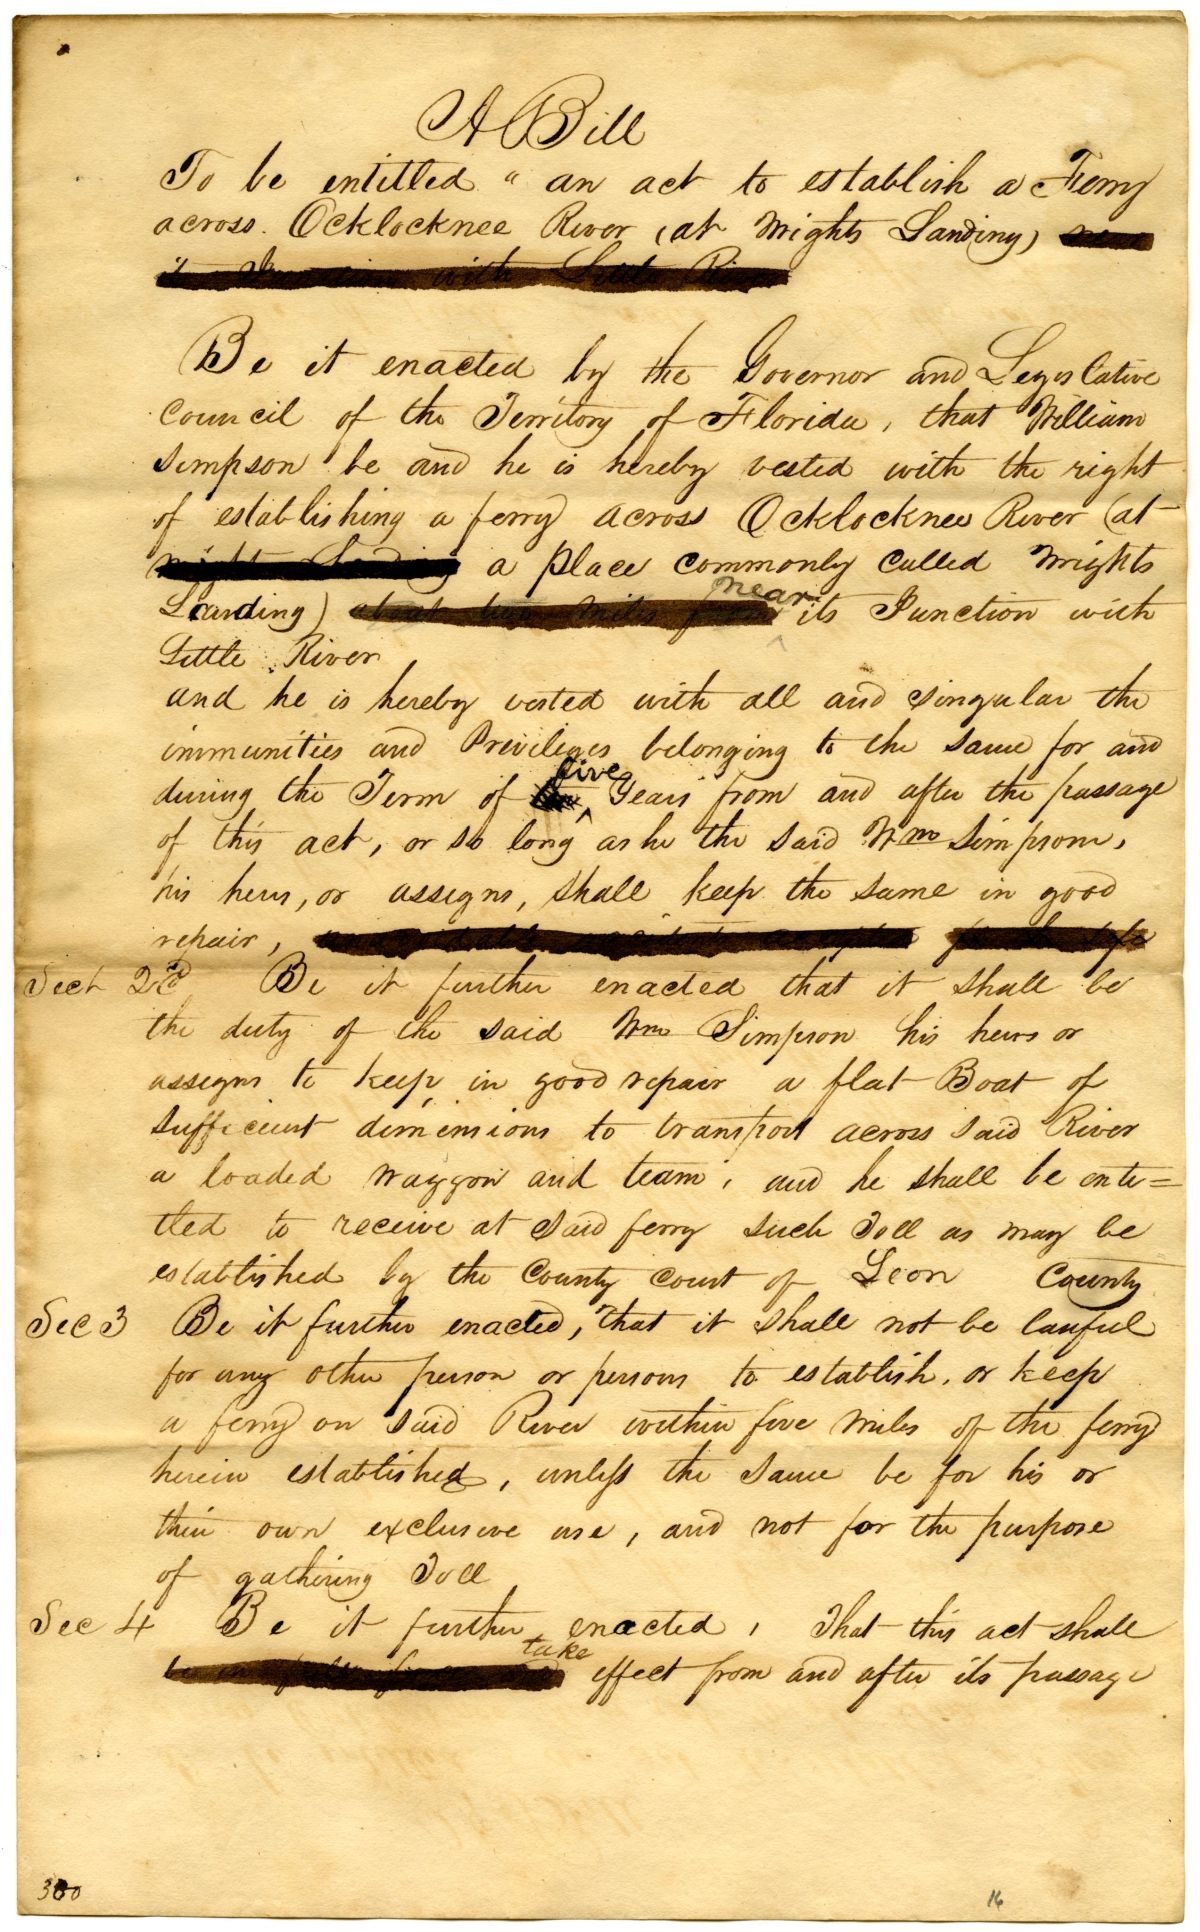 A Bill
To be entitled " an act to establish a Ferry
across Ocklocknee River (at Wrights Landing)
with Little River
Be it enacted by the Governor and Legislative
Council of the Territory of Florida, that William
Simpson be and he is hereby vested with the right
of establishing a ferry across Ocklocknee River (at
a place commonly called Wrights
near
Landing) its Junction with
Little River
and he is hereby vested with all and singular the
immunities and Privileges belonging to the same for and
five
during the Term of Years from and after the passage
of this act, or so long as he the said Wm Simpson,
his heirs, or assigns, shall keep the same in good
repair,
Sect 2d Be it further enacted that it shall be
the duty of the said Wm Simpson his heirs or
assigns to keep in good repair a flat Boat of
sufficient dimensions to transport across said River
a loaded waggon and team, and he shall be enti=
tled to receive at said ferry such Toll as may be
established by the County Court of Leon County
Sec 3 Be it further enacted, That it shall not be lawful
for any other person or persons to establish, or keep
a ferry on said River within five miles of the ferry
herein established, unless the same be for his or
their own exclusive use, and not for the purpose
of gathering Toll
Sec 4 Be it further enacted, That this act shall
take
effect from and after its passage
16